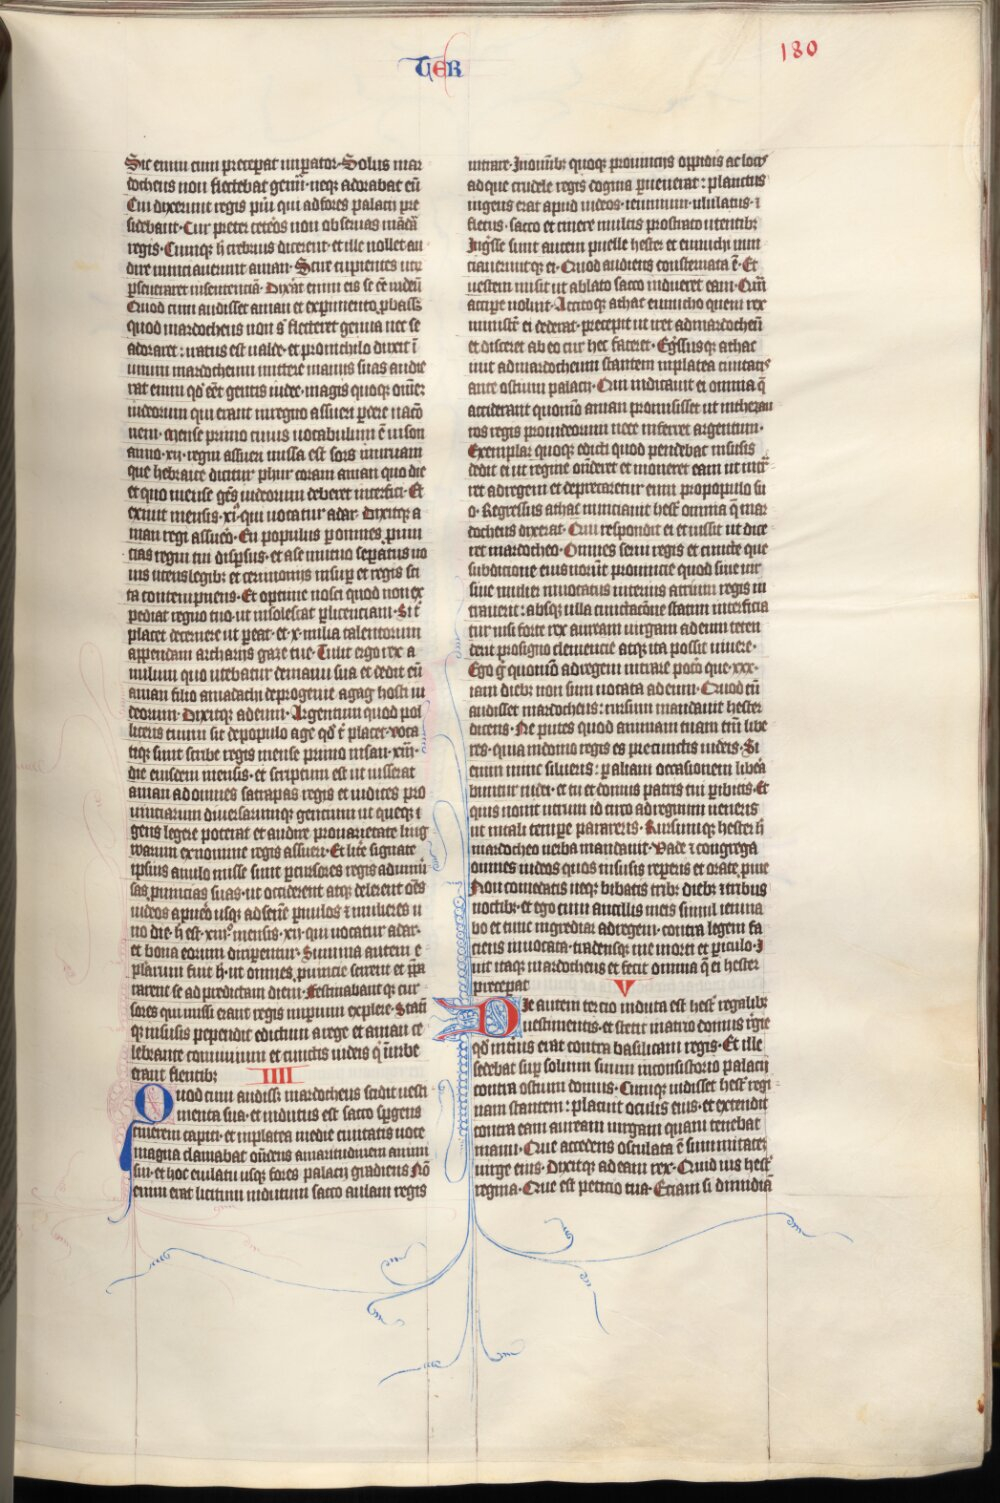 TER
180
Sic enim eis preceperat imperator· Solus mar
docheus non flectebat genu· neqꝫ adorabat eū
Cui dixerunt regis pūi qui ad fores palacij pre
sidebant· Cur preter ceteros non obseruas mādā
regis· Cumqꝫ h crebrius dicerent· et ille nollet au
dire nunciauerunt aman· Scire cupientes utꝝ
ꝑseueraret in sentenciā· Dixāt enim eis se eē iudeū
Quod cum audisset aman et experimento ꝓbass
quod mardocheus non s̄ flecteret genua nec se
adoraret : iratus est ualde· et pro nichilo duxit ī
unum mardocheum mittere manus suas audie
rat enim qd̄ eēt gentis iudee· magis quoqꝫ omēꝫ
iudeorum qui erant in regno assueri ꝑdere nacō
nem· Mense primo cuius uocabulum ē nison
anno· xii· regni assueri missa est sors in urnam
que hebraice dicitur phur coram aman quo die
et quo mense gēs iudeorum deberet interfici· Et
exiuit mensis· xi· qui uocatur adar· Dixitqꝫ a
man regi assuēo· En populus ꝑ omnes ꝓuin
cias regni tui dispsus· et a se mutuo sepatus no
uis utens legibꝫ et cerimonijs insuꝑ et regis sci
ta contempnens· Et optime nosci quod non ex
pediat regno tuo· ut insolescat ꝑ licenciam· Si t̄
placet decerne ut ꝑeat· et· x· milia talentorum
appendam archarijs gaze tue· Tulit ergo rex a
nulum quo utebatur de manu sua et dedit eū
aman filio amadachi de progenie agag hosti iu
deorum· Dixitqꝫ ad eum· Argentum quod pol
liceris tuum sit de populo age qd̄ t̄ placet· Voca
tiqꝫ sunt scribe regis mense primo nisan· xiii·
die eiusdem mensis· et scriptum est ut iusserat
aman ad omnes satrapas regis et iudices pro
uinciarum diuersarumqꝫ gentium ut queqꝫ ī
gens legere poterat et audire pro uarietate ling
warum ex nomine regis assueri· Et lr̄e signate
ipsius anulo misse sunt ꝑ cursores regis ad uniū
sas ꝓuincias suas· ut occiderent atqꝫ delerent oēs
iudeos a puēo usqꝫ ad senē ꝑuulos ⁊ mulieres u
no die· h̄ est· xiii· mensis· xii· qui uocatur adar·
et bona eorum diriperentur· Summa autem e
plarum fuit h̄· ut omnes ꝓuincie scirent et ꝑpa
rarent se ad predictam diem· Festinabant qꝫ cur
sores qui missi erant regis imperium explere· Stati
qꝫ in susis pependit edictum a rege et aman ce
lebrante conuiuium et cunctis iudeis q̄ in urbe
erant flentibꝫ
IIII
Quod cum audiss mardocheus scidit uesti
menta sua· et indutus est sacco spgens
cinerem capiti· et in platea medie ciuitatis uoce
magna clamabat on̄dens amaritudinem animi
sui· et hoc eiulatu usqꝫ fores palacij gradiens Nō
enim erat licitum indutum sacco aulam regis
intrare· In omnibꝫ quoqꝫ prouincijs oppidis ac locis
ad que crudele regis dogma ꝑuenerat : planctus
ingens erat apud iudeos· ieiunium· ululatus· ⁊
fletus· sacco et cinere multis pro strato utentibꝫ
Ing̃sse sunt autem puelle hester et eunuchi nun
ciaueruntqꝫ ei· Quod audiens consternata ē· Et
uestem misit ut ablato sacco indueret eam· Quā
accipe noluit· Accitoqꝫ athac eunucho quem rex
ministr̄ ei dederat· precepit ut iret ad mardocheū
et disceret ab eo cur hec faceret· Eg̃ssusqꝫ athac
iuit ad mardocheum stantem in platea ciuitatis
ante ostium palacij· Qui indicauit ei omnia q̄
acciderant quomō aman promisisset ut in thezau
ros regis pro iudeorum nece inferret argentum·
Exemplar quoqꝫ edicti quod pendebat in susis
dedit ei ut regine on̄deret et moneret eam ut intr̄
ret ad regem et deprecaretur eum pro populo su
o· Regressus athac nunciauit hest̄ omnia q̄ mar
docheus dixerat· Que respondit ei et iussit ut dice
ret mardocheo· Omnes serui regis et cuncte que
sub dicione eius norūt prouincie quod siue uir
siue mulier inuocatus interius atrium regis in
trauerit : absqꝫ ulla cunctacōne statim interficia
tur nisi forte rex auream uirgam ad eum teten
derit pro signo clemencie atqꝫ ita possit uiuere·
Ego g̃ quomō ad regem intrare poto que· xxx·
iam diebꝫ non sum uocata ad eum· Quod cū
audisset mardocheus : rursum mandauit hester
dicens· Ne putes quod animam tuam tm̄ libe
res· quia in domo regis es pre cunctis iudeis· Si
enim nunc silueris : ꝑ aliam occasionem liberā
buntur iudei· et tu et domus patris tui ꝑibitis· Et
quis nouit utrum id circo ad regnum ueneris
ut in tali tempe parareris· Rursumqꝫ hester h̄
mardocheo uerba mandauit· Vade ⁊ congrega
omnes iudeos quos in susis repperis et orate ꝓ me
Non comedatis neqꝫ bibatis tribꝫ diebꝫ ⁊ tribus
noctibꝫ· et ego cum ancillis meis simul ieiuna
bo et tunc ingrediar ad regem· contra legem fa
ciens inuocata· tradensqꝫ me morti et ꝑiculo· I
uit itaqꝫ mardocheus et fecit omnia q̄ ei hester
preceperat
V
Die autem tercio induta est hest̄ regalibꝫ
uestimentis· et stetit in atrio domus r̄gie
qd̄ intius erat contra basilicam regis· Et ille
sedebat sup solium suum in consistorio palacij
contra ostium domus· Cumqꝫ uidisset hest̄ regi
nam stantem : placuit oculis eius· et extendit
contra eam auream uirgam quam tenebat
manu· Que accedens osculata ē summitateꝫ
uirge eius· Dixitqꝫ ad eam rex· Quid uis hest̄
regina· Que est peticio tua· Etiam si dimidiā